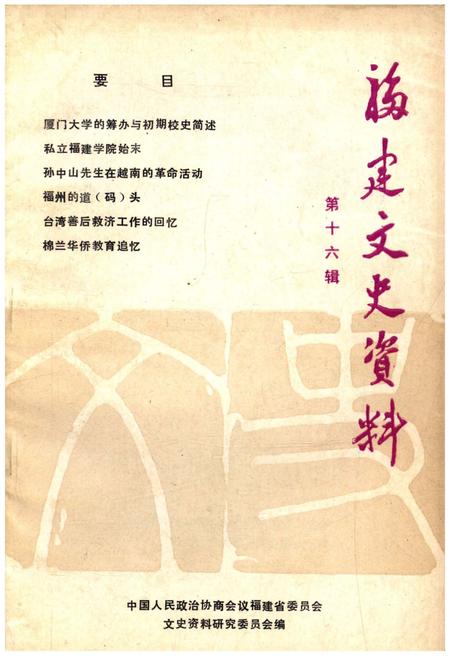 要 目
厦门大学的筹办与初期校史简述
私立福建学院始末
孙中山先生在越南的革命活动
福州的道（码）头
台湾善后救济工作的回忆
棉兰华侨教育追忆
福建文史资料
第十六辑
文史
中国人民政治协商会议福建省委员会
文史资料研究委员会编